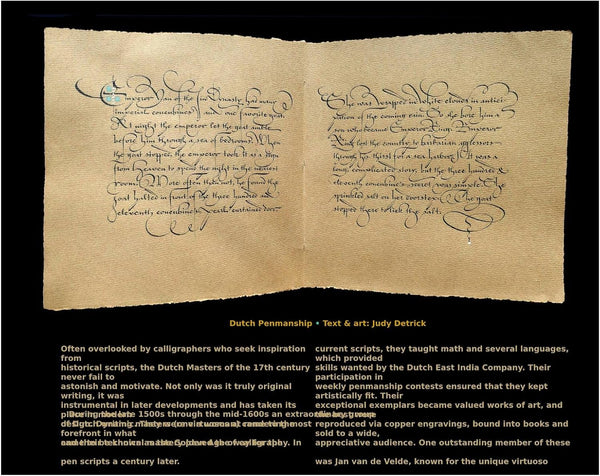 Emperor Yan of the Jin Dynasty had many
imperial concubines & and one favorite goat.
At night the emperor let the goat amble
before him through a sea of bedrooms. When
the goat stopped, the emperor took it as a sign
from heaven to spend the night in the nearest
room. More often than not, he found the
goat halted in front of the three hundred and
eleventh concubine's curtained door.
She was wrapped in white clouds in antici-
pation of the coming rain. So she bore him a
son who became Emperor
lost the country to barbarian aggressors
through his thirst for a sea harbor. It was a
long, complicated story, but the three hundred &
eleventh concubine's secret was simple. She
sprinkled salt on her doorstep. The goat
stopped there to lick the salt.
Dutch Penmanship • Text & art: Judy Detrick
Often overlooked by calligraphers who seek inspiration
from
historical scripts, the Dutch Masters of the 17th century
never fail to
astonish and motivate. Not only was it truly original
writing, it was
instrumental in later developments and has taken its
forefront in what
pen scripts a century later.
current scripts, they taught math and several languages,
which provided
skills wanted by the Dutch East India Company. Their
participation in
weekly penmanship contests ensured that they kept
artistically fit. Their
exceptional exemplars became valued works of art, and
reproduced via copper engravings, bound into books and
sold to a wide,
appreciative audience. One outstanding member of these
was Jan van de Velde, known for the unique virtuoso